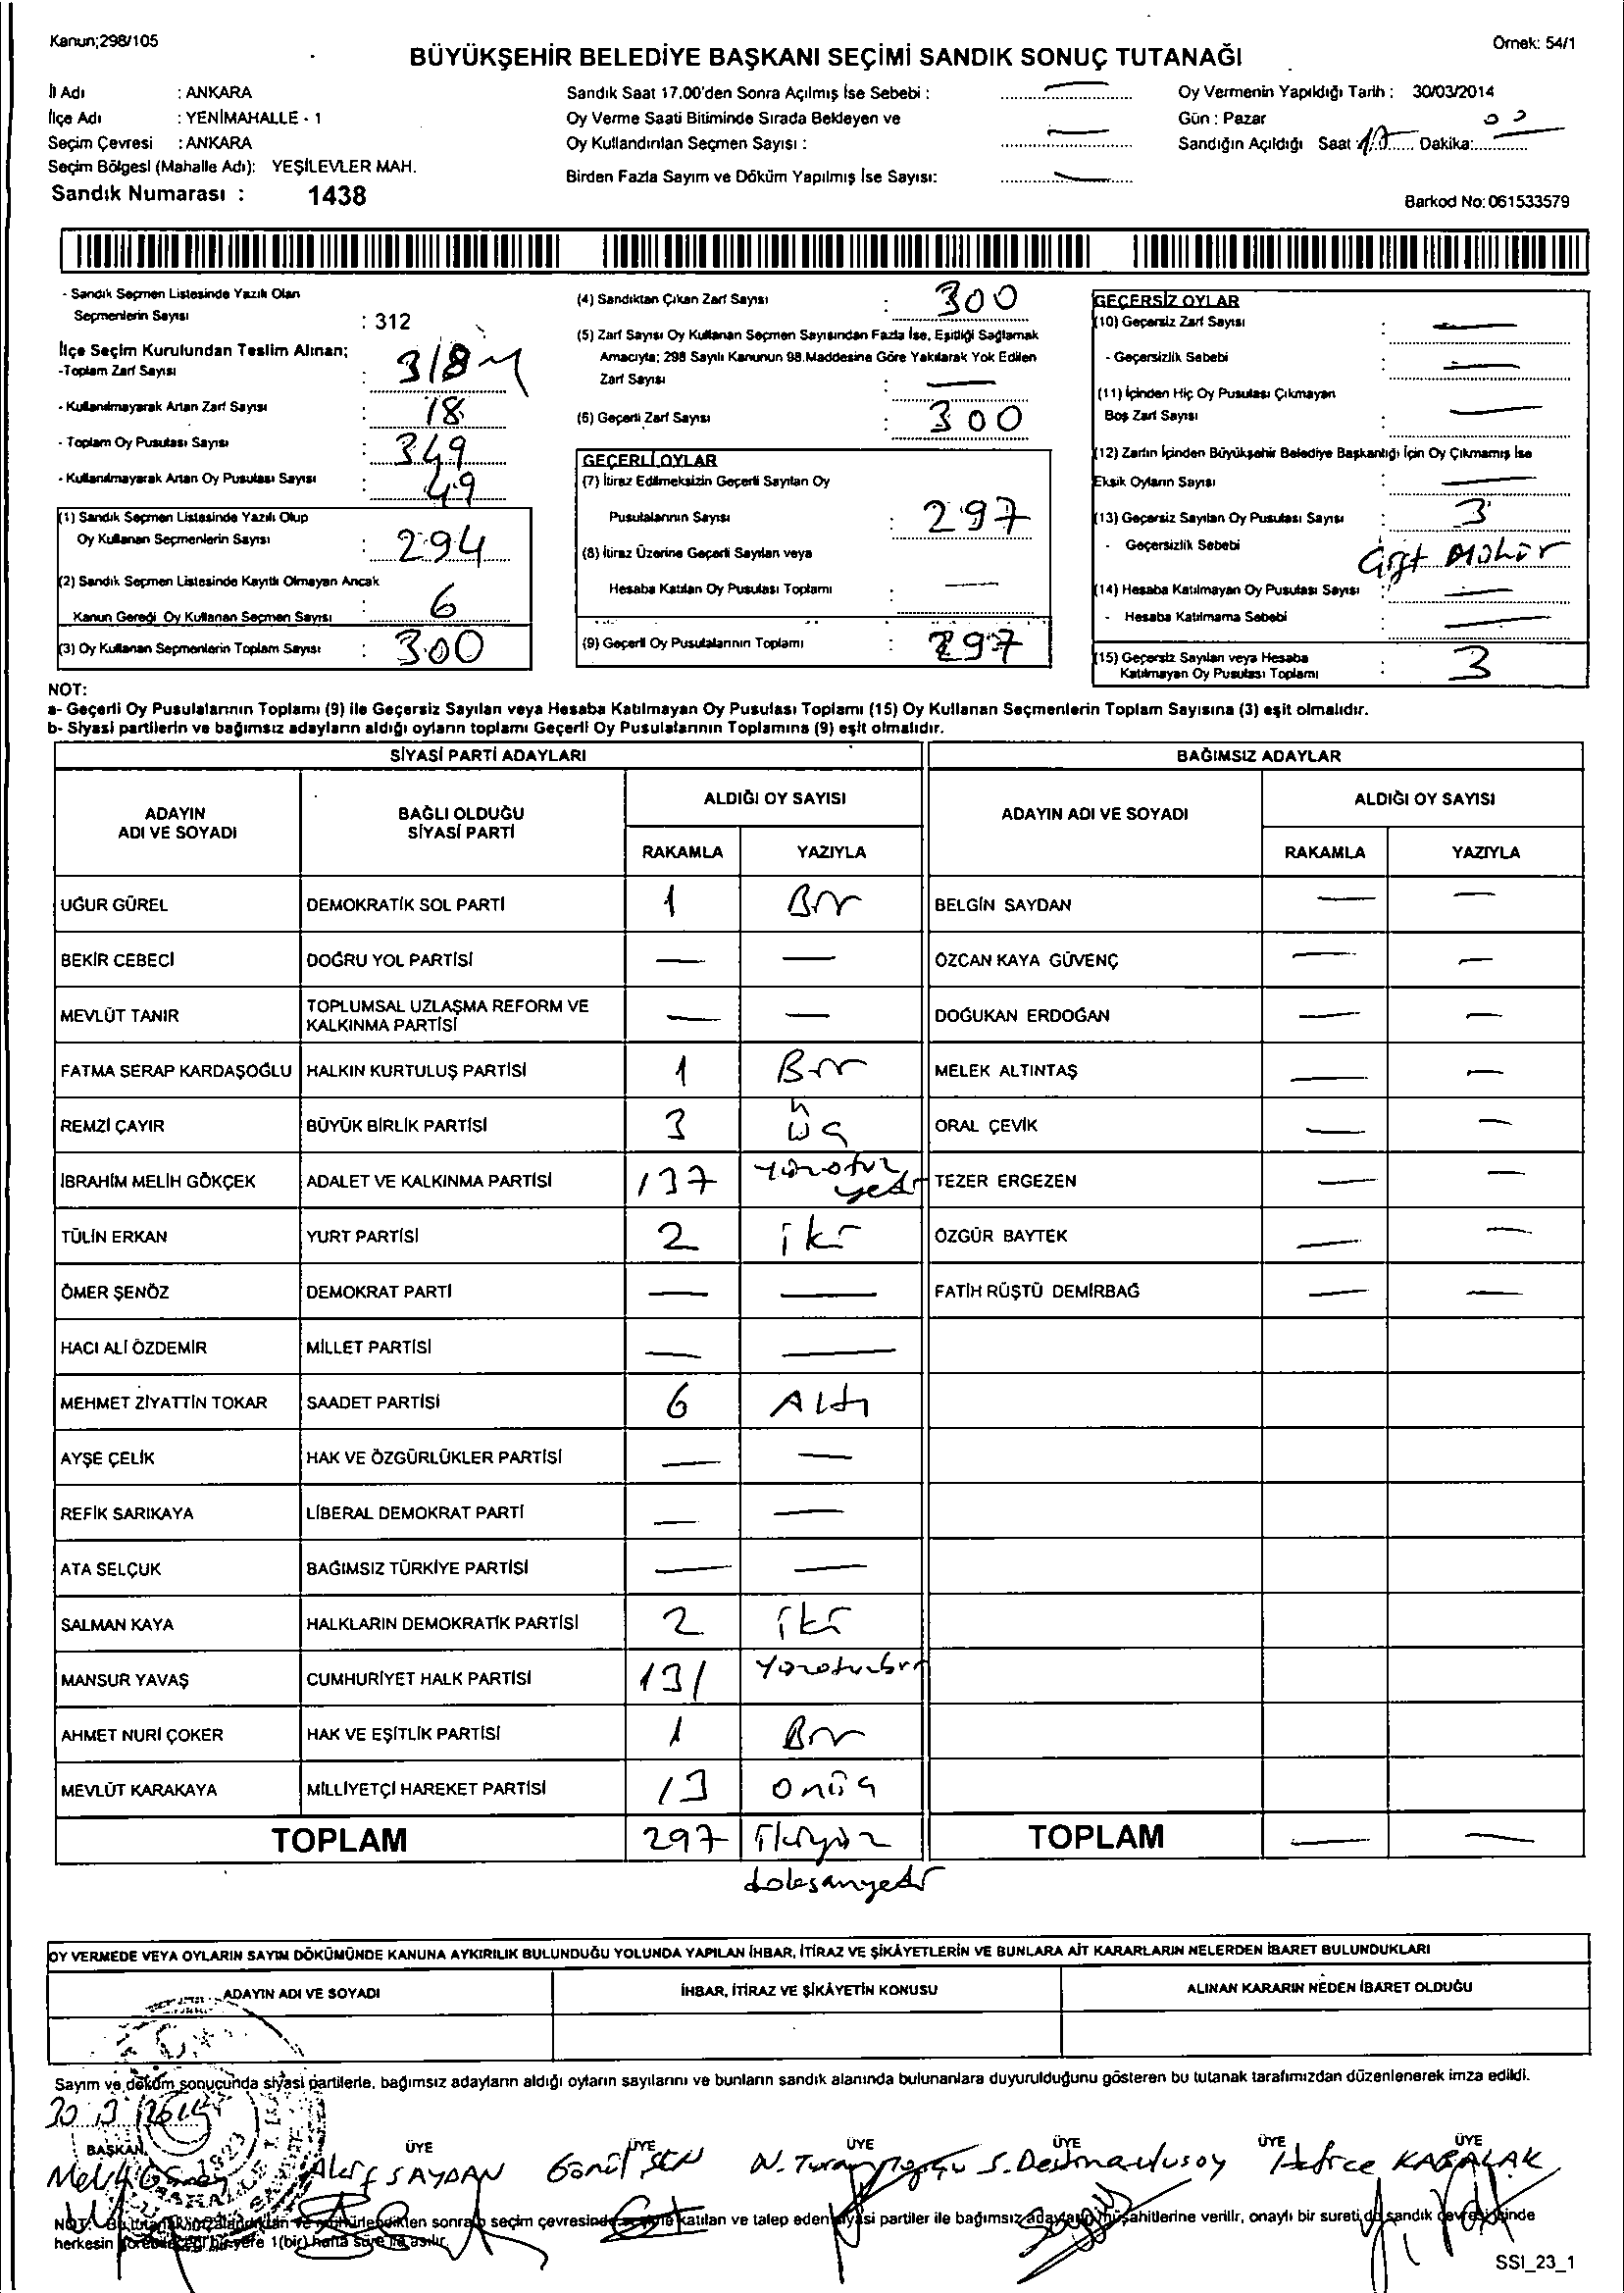 Kanun;298/105
Örnek: 54/1
BÜYÜKŞEHİR BELEDİYE BAŞKANI SEÇİMİ SANDIK SONUÇ TUTANAĞI
İl Adı : ANKARA
İlçe Adı : YENİMAHALLE - 1
Seçim Çevresi : ANKARA
Seçim Bölgesi (Mahalle Adı): YEŞİLEVLER MAH.
Sandık Numarası : 1438
Sandık Saat 17.00'den Sonra Açılmış İse Sebebi : —
Oy Verme Saati Bitiminde Sırada Bekleyen ve
Oy Kullandırılan Seçmen Sayısı : —
Birden Fazla Sayım ve Döküm Yapılmış İse Sayısı: —
Oy Vermenin Yapıldığı Tarih : 30/03/2014
Gün : Pazar
Sandığın Açıldığı Saat 17 Dakika: 00
Barkod No: 061533579
- Sandık Seçmen Listesinde Yazılı Olan
Seçmenlerin Sayısı : 312
İlçe Seçim Kurulundan Teslim Alınan;
-Toplam Zarf Sayısı : 318
- Kullanılmayarak Artan Zarf Sayısı : 18
- Toplam Oy Pusulası Sayısı : 349
- Kullanılmayarak Artan Oy Pusulası Sayısı : 49
(1) Sandık Seçmen Listesinde Yazılı Olup
Oy Kullanan Seçmenlerin Sayısı : 294
(2) Sandık Seçmen Listesinde Kayıtlı Olmayan Ancak
Kanun Gereği Oy Kullanan Seçmen Sayısı : 6
(3) Oy Kullanan Seçmenlerin Toplam Sayısı : 300
(4) Sandıktan Çıkan Zarf Sayısı : 300
(5) Zarf Sayısı Oy Kullanan Seçmen Sayısından Fazla İse, Eşitliği Sağlamak
Amacıyla; 298 Sayılı Kanunun 98.Maddesine Göre Yakılarak Yok Edilen
Zarf Sayısı : —
(6) Geçerli Zarf Sayısı : 300
GEÇERLİ OYLAR
(7) İtiraz Edilmeksizin Geçerli Sayılan Oy
Pusulalarının Sayısı : 297
(8) İtiraz Üzerine Geçerli Sayılan veya
Hesaba Katılan Oy Pusulası Toplamı : —
(9) Geçerli Oy Pusulalarının Toplamı : 297
GEÇERSİZ OYLAR
(10) Geçersiz Zarf Sayısı : —
- Geçersizlik Sebebi : —
(11) İçinden Hiç Oy Pusulası Çıkmayan
Boş Zarf Sayısı : —
(12) Zarfın İçinden Büyükşehir Belediye Başkanlığı İçin Oy Çıkmamış İse
Eksik Oyların Sayısı : —
(13) Geçersiz Sayılan Oy Pusulası Sayısı : 3
- Geçersizlik Sebebi : Çift Mühür
(14) Hesaba Katılmayan Oy Pusulası Sayısı : —
- Hesaba Katılmama Sebebi : —
(15) Geçersiz Sayılan veya Hesaba
Katılmayan Oy Pusulası Toplamı : 3
NOT:
a- Geçerli Oy Pusulalarının Toplamı (9) ile Geçersiz Sayılan veya Hesaba Katılmayan Oy Pusulası Toplamı (15) Oy Kullanan Seçmenlerin Toplam Sayısına (3) eşit olmalıdır.
b- Siyasi partilerin ve bağımsız adayların aldığı oyların toplamı Geçerli Oy Pusulalarının Toplamına (9) eşit olmalıdır.
SİYASİ PARTİ ADAYLARI BAĞIMSIZ ADAYLAR
ADAYIN ADI VE SOYADI BAĞLI OLDUĞU SİYASİ PARTİ ALDIĞI OY SAYISI ADAYIN ADI VE SOYADI ALDIĞI OY SAYISI
RAKAMLA YAZIYLA RAKAMLA YAZIYLA
UĞUR GÜREL DEMOKRATİK SOL PARTİ 1 Bir BELGİN SAYDAN — —
BEKİR CEBECİ DOĞRU YOL PARTİSİ — — ÖZCAN KAYA GÜVENÇ — —
MEVLÜT TANIR TOPLUMSAL UZLAŞMA REFORM VE KALKINMA PARTİSİ — — DOĞUKAN ERDOĞAN — —
FATMA SERAP KARDAŞOĞLU HALKIN KURTULUŞ PARTİSİ 1 Bir MELEK ALTINTAŞ — —
REMZİ ÇAYIR BÜYÜK BİRLİK PARTİSİ 3 üç ORAL ÇEVİK — —
İBRAHİM MELİH GÖKÇEK ADALET VE KALKINMA PARTİSİ 137 yüzotuz yedi TEZER ERGEZEN — —
TÜLİN ERKAN YURT PARTİSİ 2 iki ÖZGÜR BAYTEK — —
ÖMER ŞENÖZ DEMOKRAT PARTİ — — FATİH RÜŞTÜ DEMİRBAĞ — —
HACI ALİ ÖZDEMİR MİLLET PARTİSİ — —
MEHMET ZİYATTİN TOKAR SAADET PARTİSİ 6 Altı
AYŞE ÇELİK HAK VE ÖZGÜRLÜKLER PARTİSİ — —
REFİK SARIKAYA LİBERAL DEMOKRAT PARTİ — —
ATA SELÇUK BAĞIMSIZ TÜRKİYE PARTİSİ — —
SALMAN KAYA HALKLARIN DEMOKRATİK PARTİSİ 2 iki
MANSUR YAVAŞ CUMHURİYET HALK PARTİSİ 131 Yüzotuzbir
AHMET NURİ ÇOKER HAK VE EŞİTLİK PARTİSİ 1 Bir
MEVLÜT KARAKAYA MİLLİYETÇİ HAREKET PARTİSİ 13 onüç
TOPLAM 297 İkiyüz TOPLAM — —
doksanyedi
OY VERMEDE VEYA OYLARIN SAYIM DÖKÜMÜNDE KANUNA AYKIRILIK BULUNDUĞU YOLUNDA YAPILAN İHBAR, İTİRAZ VE ŞİKÂYETLERİN VE BUNLARA AİT KARARLARIN NELERDEN İBARET BULUNDUKLARI
ADAYIN ADI VE SOYADI İHBAR, İTİRAZ VE ŞİKÂYETİN KONUSU ALINAN KARARIN NEDEN İBARET OLDUĞU
Sayım ve döküm sonucunda siyasi partilerle, bağımsız adayların aldığı oyların sayılarını ve bunların sandık alanında bulunanlara duyurulduğunu gösteren bu tutanak tarafımızdan düzenlenerek imza edildi.
BAŞKAN ÜYE ÜYE ÜYE ÜYE ÜYE ÜYE
SAYDAN Gönül ŞEN Hatice KABALAK
NOT: Bu tutanak imzalandıktan ve mühürlendikten sonra seçim çevresinde seçime katılan ve talep eden siyasi partiler ile bağımsız adayların müşahitlerine verilir, onaylı bir sureti de sandık çevresinde
herkesin görebileceği bir yere 1(bir) hafta süre ile asılır.
SSI_23_1